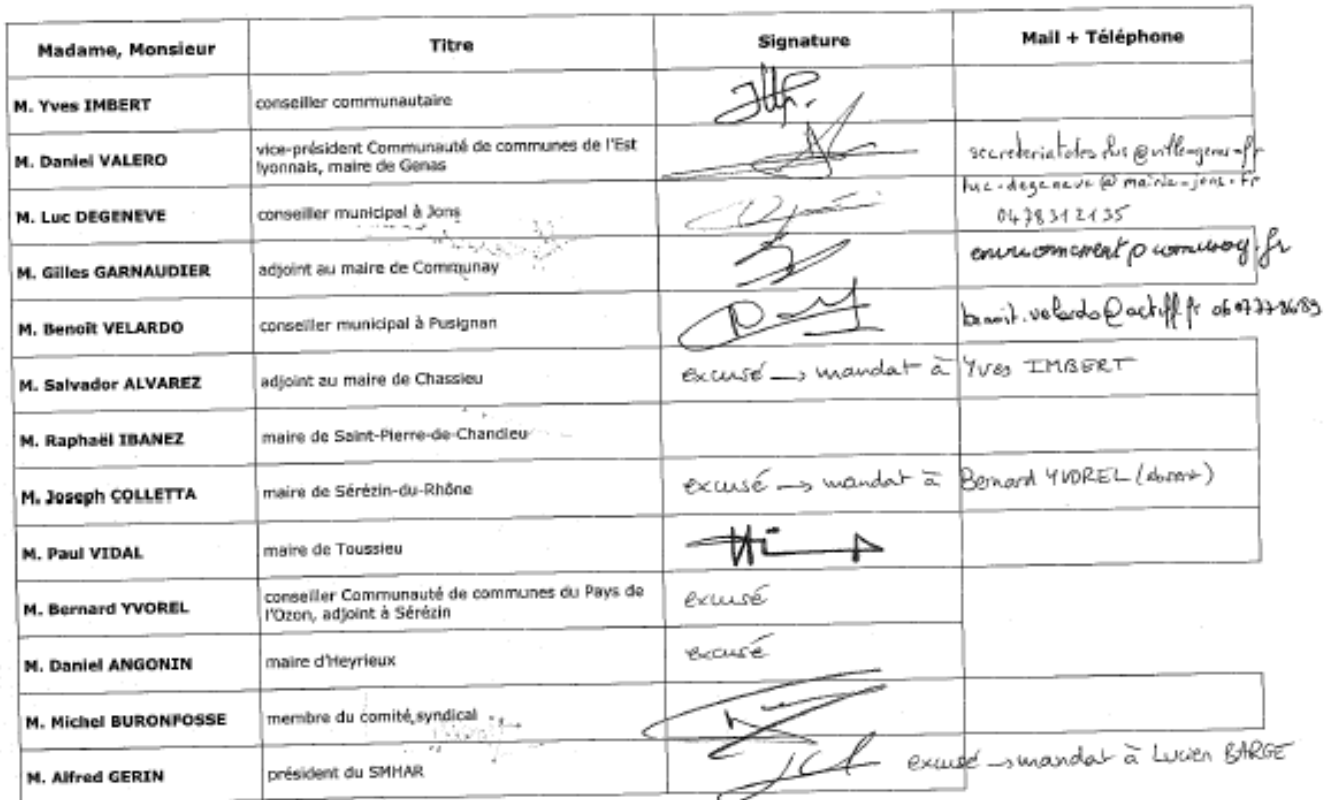 Madame, Monsieur Titre Signature Mail + Téléphone
M. Yves IMBERT conseiller communautaire
M. Daniel VALERO vice-président Communauté de communes de l'Est
lyonnais, maire de Genas
luc.degeneve@mairie-jons.fr
M. Luc DEGENEVE conseiller municipal à Jons 0478312135
M. Gilles GARNAUDIER adjoint au maire de Communay
M. Benoît VELARDO conseiller municipal à Pusignan
M. Salvador ALVAREZ adjoint au maire de Chassieu excusé → mandat à Yves IMBERT
M. Raphaël IBANEZ maire de Saint-Pierre-de-Chandieu
M. Joseph COLLETTA maire de Sérézin-du-Rhône excusé → mandat à Bernard YVOREL (absent)
M. Paul VIDAL maire de Toussieu
M. Bernard YVOREL conseiller Communauté de communes du Pays de
l'Ozon, adjoint à Sérézin excusé
M. Daniel ANGONIN maire d'Heyrieux excusé
M. Michel BURONFOSSE membre du comité syndical
M. Alfred GERIN président du SMHAR excusé → mandat à Lucien BARGE